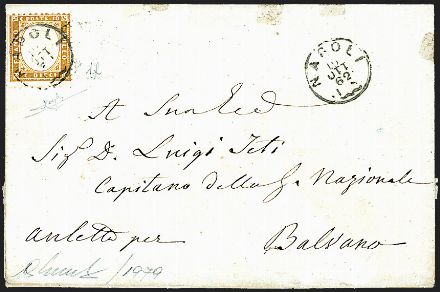 NAPOLI
NAPOLI
OTT
62
A
Sig D. Luigi Teti
Capitano della G. Nazionale
Auletta per Balvano
/1979